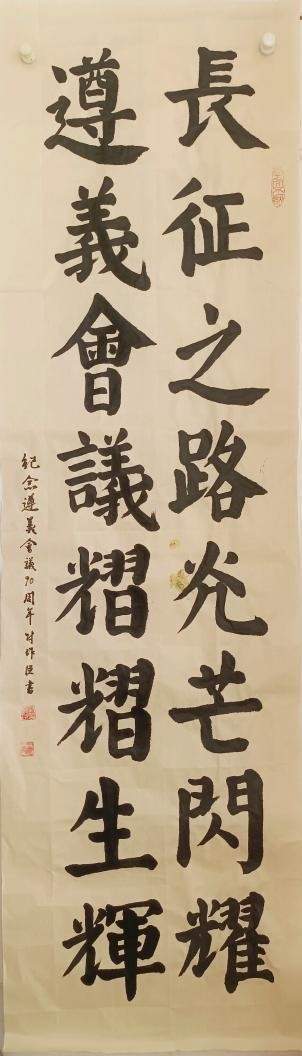 長征之路光芒閃耀
遵義會議熠熠生輝
紀念遵義會議90周年 作臣書